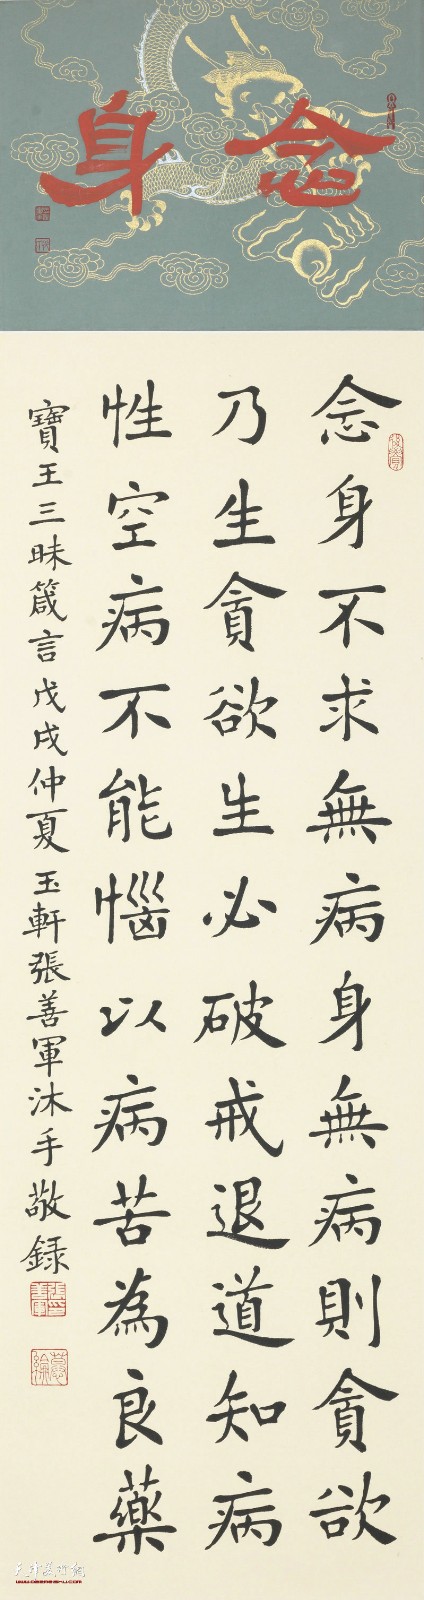 念身
念身不求無病身無病則貪欲
乃生貪欲生必破戒退道知病
性空病不能惱以病苦為良藥
寶王三昧箴言戊戌仲夏玉軒張善軍沐手敬録